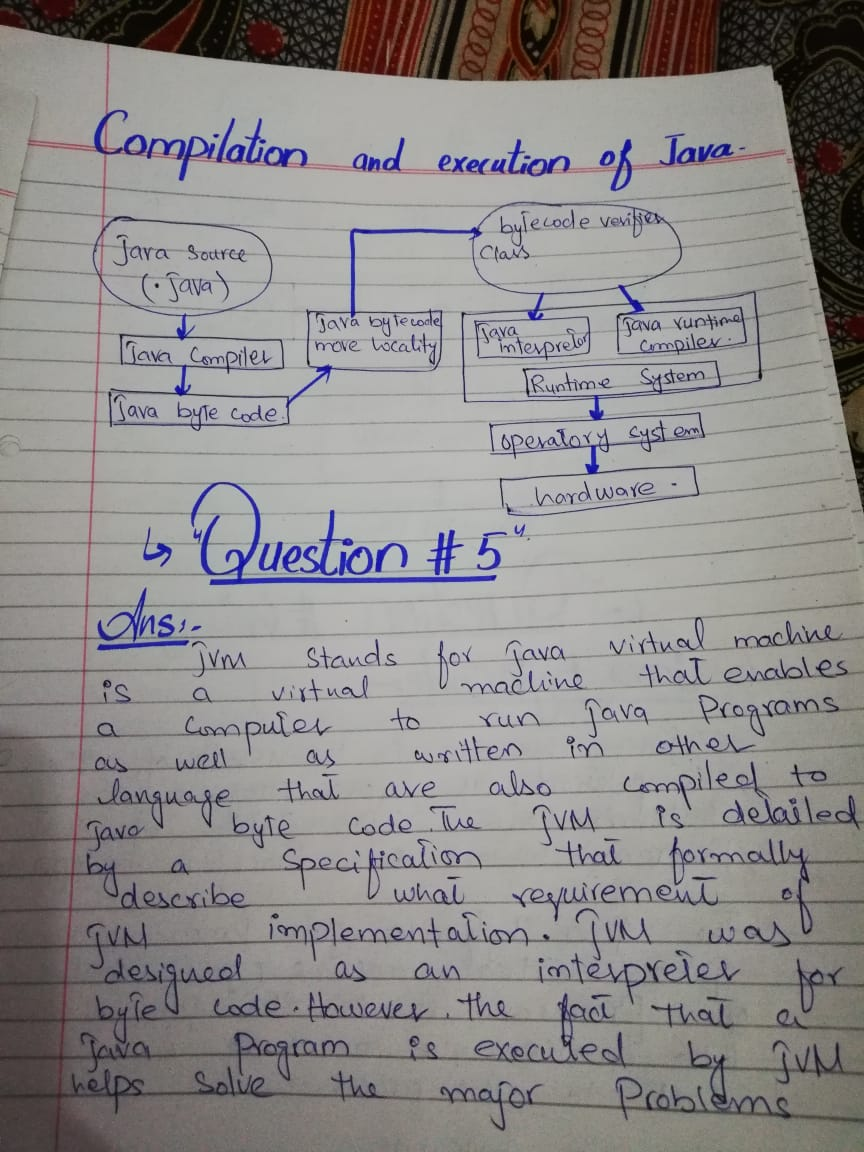 Compilation and execution of Java.
Java Source
(.java)
Java Compiler
Java byte code.
Java bytecode
move locality
bytecode verifier
Class
Java
interpretor
Java runtime
compiler.
Runtime System
operatory system
hardware.
↳ "Question # 5".
Ans:-
JVM Stands for Java virtual machine
is a virtual machine that enables
a Computer to run Java Programs
as well as written in other
language that are also compiled to
Java byte code. The JVM is detailed
by a Specification that formally
describe what requirement of
JVM implementation. JVM was
designed as an interpreter for
byte code. However, the fact that a
Java Program is executed by JVM
helps Solve the major Problems